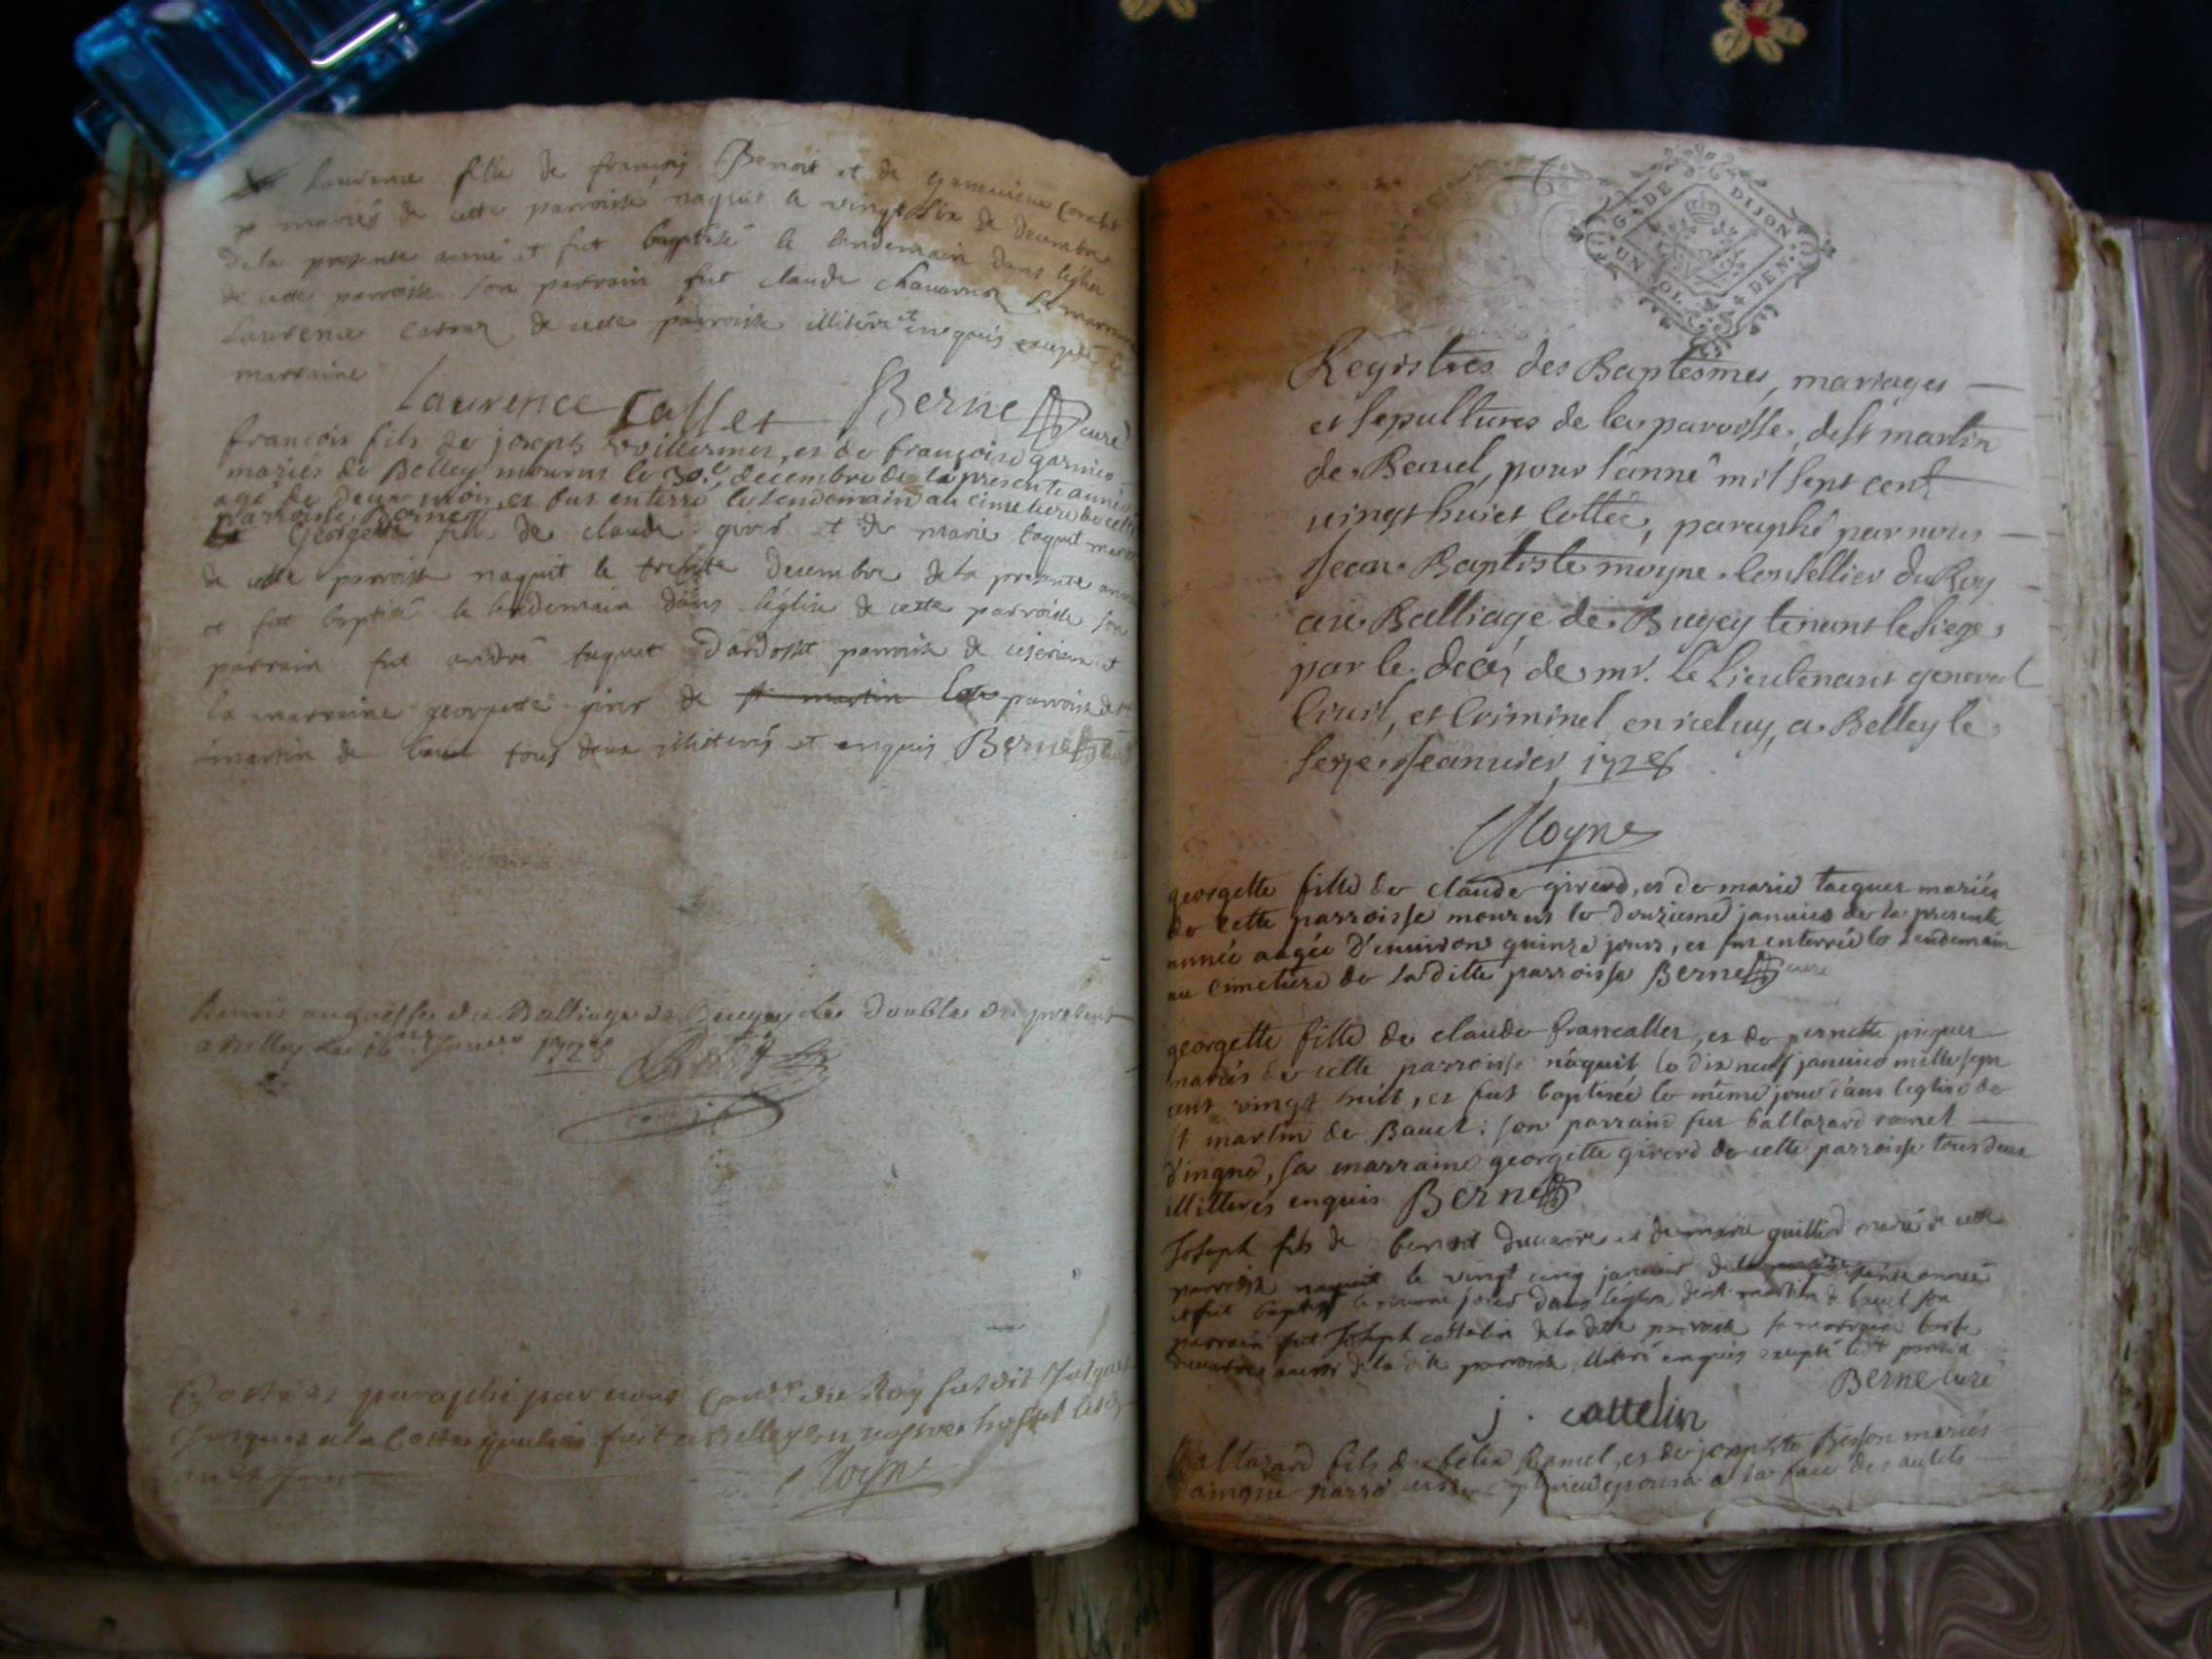 Laurence fille de françois Benoit et de genevieve
mariés de cette parroisse naquit le vingt six de decembre
de la presente anné et fut baptisé le lendemain dans leglise
de cette parroisse son parrain fut claude chavarnos sa marraine
Laurence de cette parroisse illiteré et enquis excepté la
marraine
Laurence Callet Berne curé
françois fils de joseph et de françoise
mariés de Belley mourut le 30.e decembre de la presente année
agé de deux mois, et fut enterré le lendemain au cimetiere de cette
parroisse Berne
georgette fille de claude et de marie taquet mariés
de cette parroisse naquit le trente decembre de la presente année
et fut baptisé le lendemain dans leglise de cette parroisse son
parrain fut andré taquet parroisse de et
la marraine georgette de st martin parroisse de st
martin de bauel tous deux illiterés et enquis Berne
Remis au greffe du Balliage de Beugey le double du present
a Belley le 16e 1728
Cotté et paraphé par nous Coner du Roy susdit
a la Cotte fait a Belley en nostre hostel lesdits
Moyne
G. DE DIJON
UN SOL 4 DEN.
Registres des Baptesmes, mariages
et sepultures de la paroisse, de st martin
de Bauel, pour l'anné mil sept cent
vingt huict Cottée, paraphé par nous
Jean Baptiste moyne Conseillier du Roy
au Balliage de Bugey tenant le siege
par le decés de mr. Le Lieutenant general
Civil, et Criminel en iceluy, a Belley le
seze Jeanvier 1728
Moyne
georgette fille de claude girerd, et de marie taquet mariés
de cette parroisse mourut le douzieme janvier de la presente
année aagée d'environ quinze jours, et fut enterrée le lendemain
au cimetiere de laditte parroisse Berne curé
georgette fille de claude francallet, et de pernette
mariés de cette parroisse náquit le dix neuf janvier mille sept
cent vingt huit, et fut baptisée le même jour dans leglise de
st martin de Bauel: son parrain fut baltazard ramel
d'ingne, sa marraine georgette girerd de cette parroisse tous deux
illitterés enquis Berne
Joseph fils de benoit ducarre et de marie guillerd marié de cette
parroisse naquit le vingt cinq janvier de la presente année
et fut baptisé le meme jour dans leglise de st martin de bauel son
parrain fut Joseph cattelin de la dite parroisse sa marraine
ducarre aussi de la dite parroisse illiteré enquis excepté le dt parrain
Berne curé
j. cattelin
Baltazard fils de felix Ramel, et de josephte Besson mariés
parroisse epousa a la face des autels